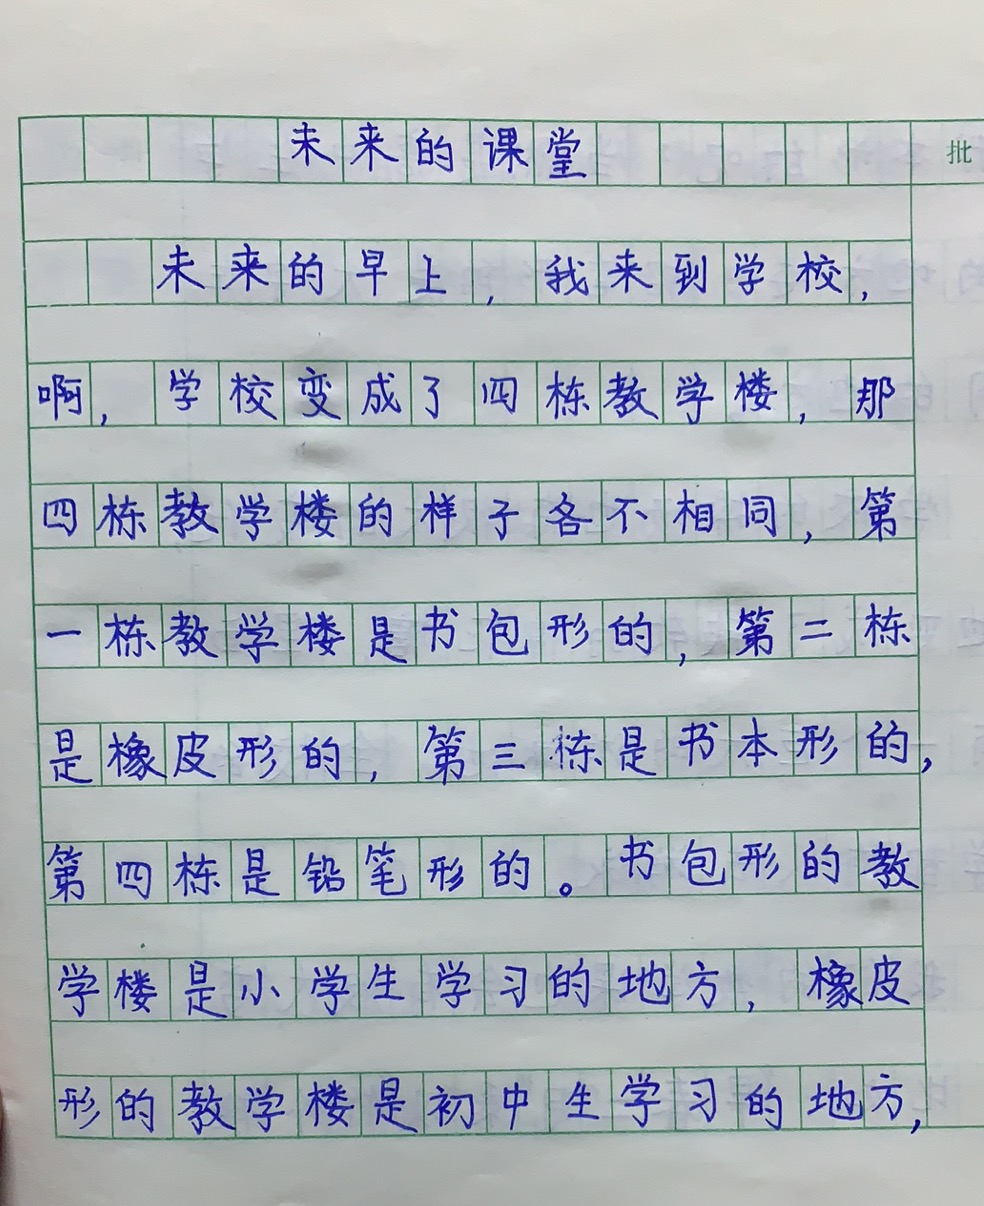 未来的课堂
批
未来的早上，我来到学校，
啊，学校变成了四栋教学楼，那
四栋教学楼的样子各不相同，第
一栋教学楼是书包形的，第二栋
是橡皮形的，第三栋是书本形的，
第四栋是铅笔形的。书包形的教
学楼是小学生学习的地方，橡皮
形的教学楼是初中生学习的地方，